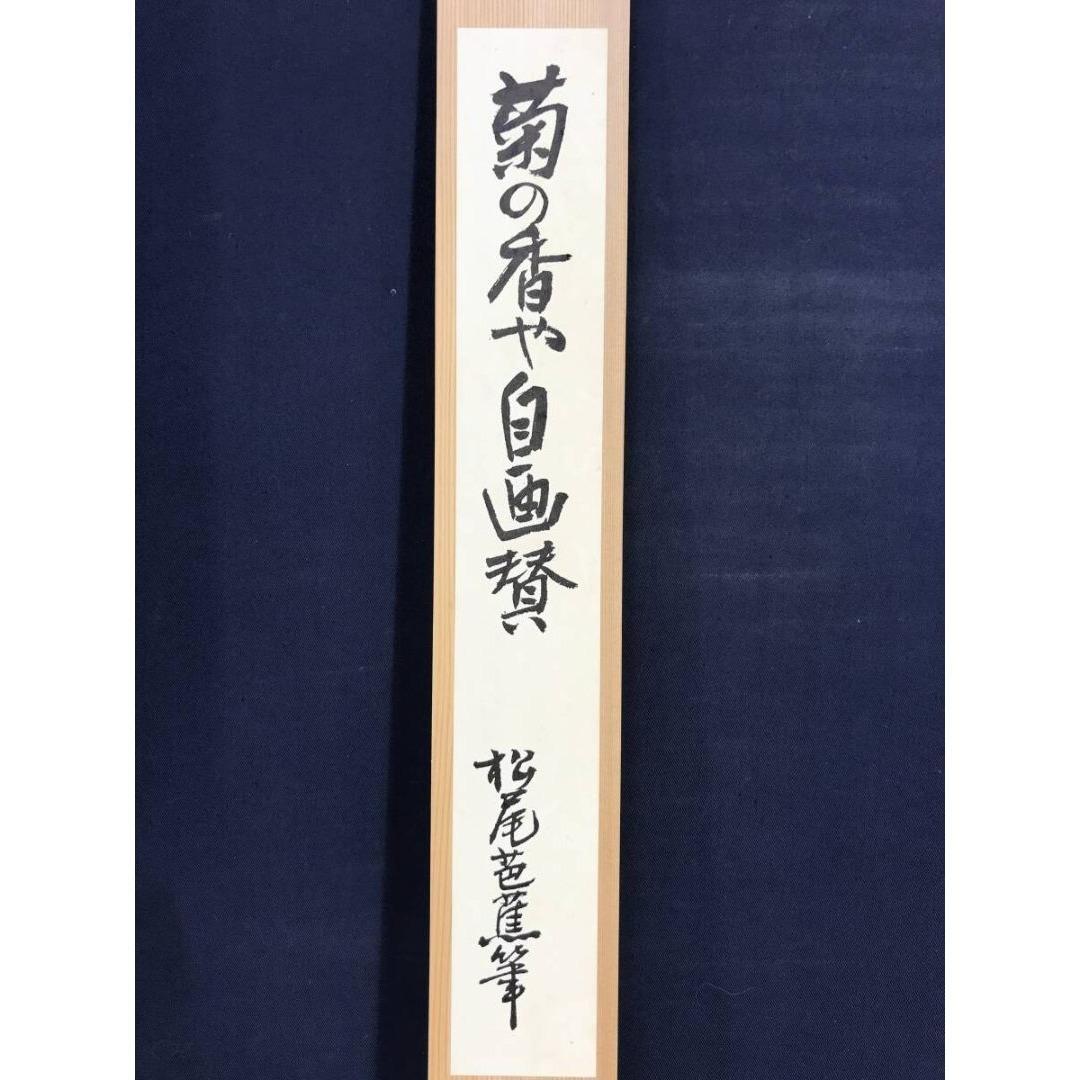 菊の香や自画賛
松尾芭蕉筆